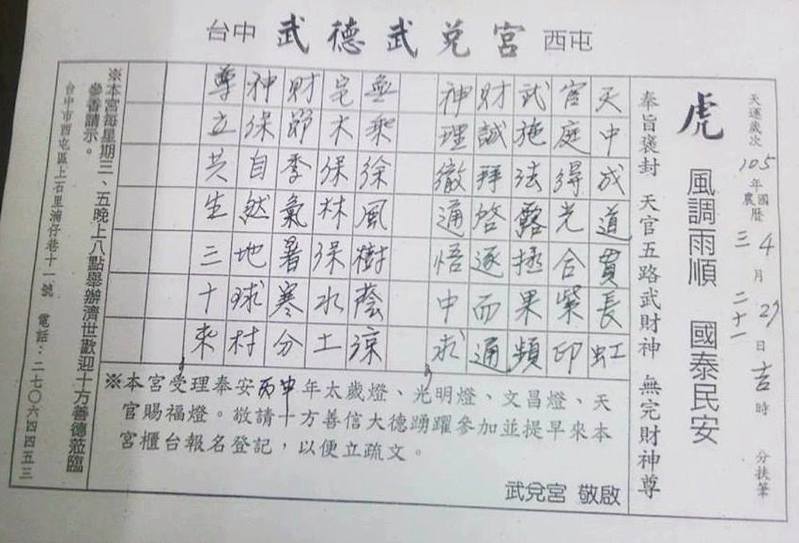 台中 武德武兌宮 西屯
天運歲次 105年 國農曆 三4月 二十一27日 吉時 分扶筆
虎 風調雨順 國泰民安
奉旨褒封 天官五路武財神 無完財神尊
天中成道貫長虹
官庭得光合紫印
武施法露拯果頻
財誠拜啓逐而通
神理徹通悟中求
無乘徐風樹蔭涼
宅木保林保水土
財節季氣暑寒分
神保自然地球村
尊立共生三十來
※本宮受理奉安丙申年太歲燈、光明燈、文昌燈、天
官賜福燈。敬請十方善信大德踴躍參加並提早來本
宮櫃台報名登記,以便立疏文。
武兌宮 敬啟
※本宮每星期三、五晚上八點舉辦濟世歡迎十方善德蒞臨
參香請示。
台中市西屯區上石里湳仔巷十一號 電話:二七○六四四五三